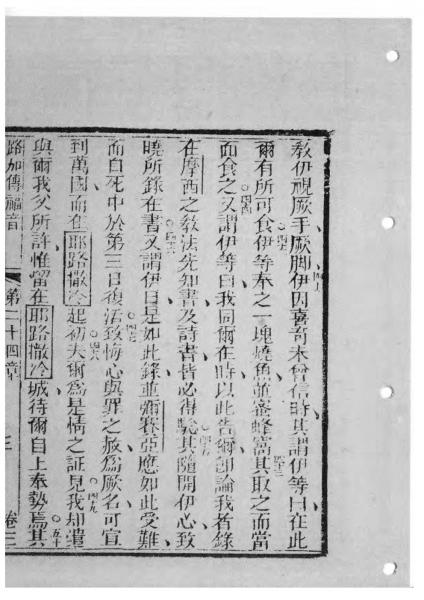 教伊視厥手厥脚伊因喜奇未曾信時其謂伊等曰在此
爾有所可食伊等奉之一塊燒魚並蜜蜂窩其取之而當
面食之又謂伊等曰我同爾在時以此告爾即論我者錄
在摩西之教法先知書及詩書皆必得驗其隨開伊心致
曉所錄在書又謂伊曰是如此錄並彌賽亞應如此受難
而自死中於第三日復活致悔心與罪之赦為厥名可宣
到萬國而在耶路撒冷起初夫爾為是情之証見我却遣
與爾我父所許惟留在耶路撒冷城待爾自上奉勢焉其
路加傳福音 第二十四章 卷三